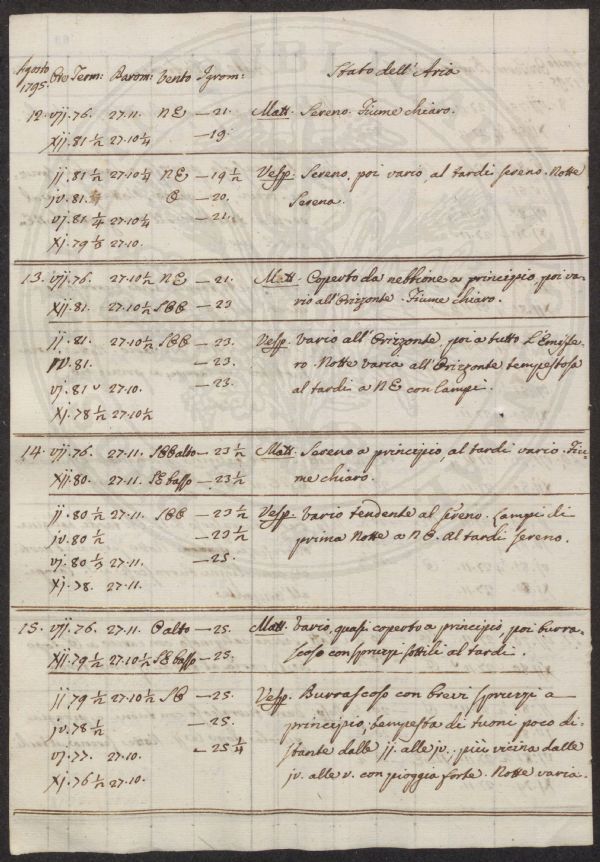 Agosto
1795. Ore Term: Barom: Vento Igrom: Stato dell'Aria
12. vij. 76. 27. 11. NE —21. Matt. Sereno. Fiume chiaro.
xij. 81 ½ 27. 10 ¼ —19.
ij. 81 ½ 27. 10 ¼ NE —19 ½ Vesp. Sereno, poi vario, al tardi sereno. Notte
jv. 81. O —20. Serena.
vj. 81 ¼ 27. 10 ¼ —21.
xj. 79 ½ 27. 10.
13. vij. 76. 27. 10 ½ NE —21. Matt. Coperto da nebbione a principio, poi va-
xij. 81. 27. 10 ½ SEE —23 rio all'Orizzonte. Fiume chiaro.
ij. 81. 27. 10 ½ SEE —23. Vesp. Vario all'Orizzonte, poi a tutto l'Emisfe-
jv. 81. —23. ro. Notte varia all'Orizzonte tempestosa
vj. 81 27. 10. —23. al tardi a NE con lampi.
xj. 78 ½ 27. 10 ½
14. vij. 76. 27. 11. SEE alto —23 ½ Matt. Sereno a principio, al tardi vario. Fiu-
xij. 80. 27. 11. SE basso —23 ½ me chiaro.
ij. 80 ½ 27. 11. SEE —23 ½ Vesp. Vario tendente al sereno. Lampi di
jv. 80 ½ —23 ½ prima Notte a NE. al tardi sereno.
vj. 80 ⅓ 27. 11. —25.
xj. 78. 27. 11.
15. vij. 76. 27. 11. O alto —25. Matt. Vario, quasi coperto a principio, poi burra-
xij. 79 ½ 27. 10 ½ SE basso —25. scoso con spruzzi sottili al tardi.
ij 79 ½ 27. 10 ½ SE —25. Vesp. Burrascoso con brevi spruzzi a
jv. 78 ½ —25. principio; tempesta di tuoni poco di-
vj. 77. 27. 10. —25 ¼ stante dalle ij. alle jv., più vicina dalle
xj. 76 ½ 27. 10. jv. alle v. con pioggia forte. Notte varia.